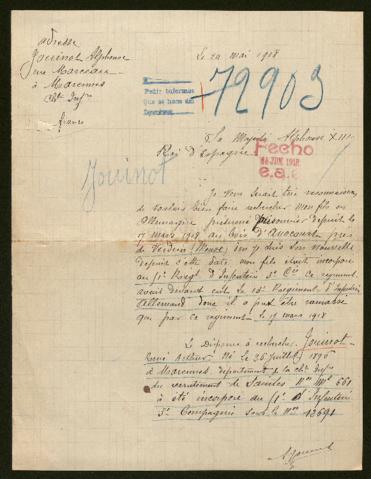 adresse
Jouinot Alphonse
rue Marceau
à Marennes
Chte Infre
France
Le 20 mai 1918
Pedir informes
que se hace en
72903
Sa Majesté Alphonse XIII
Roi d'Espagne
Fecho
JUN. 1918
e.a.
Jouinot
Je vous serait très reconnaissan
de vouloir bien faire rechercher mon fils en
Allemagne présumé prisonnier depuis le
17 mars 1918 au bois d'Avocourt près
de Verdun (Meuse) don je suis son nouvelle
depuis cette date mon fils était incorporé
au 1e Regt d'Infanterie 5e Cie ce regiment
avait devant lui le 15e Regiment d'Infanterie
Allemand donc il a put être ramassé
que par ce régiment le 17 mars 1918
Le Disparu à rechercher Jouinot
René Arthur Né le 26 juillet 1896
à Marennes département de la chte Infre
du recrutement de Saintes Nro Mle 661
à été incorporé au 1e d'Infanterie
5e Compagnie sous le Nro 12691